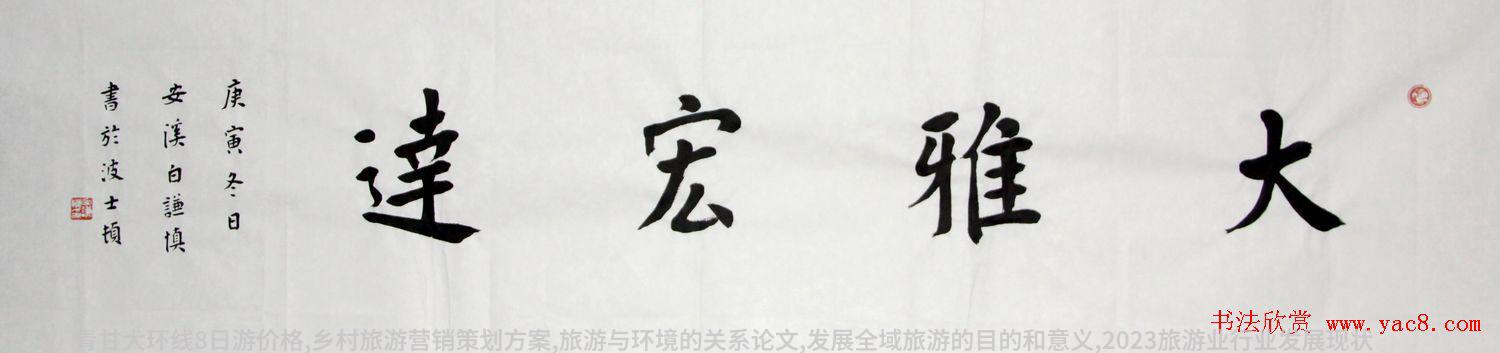 大雅宏達
庚寅冬日
安溪白謙慎
書於波士頓
书法欣赏 www.yac8.com
青甘大环线8日游价格,乡村旅游营销策划方案,旅游与环境的关系论文,发展全域旅游的目的和意义,2023旅游业行业发展现状